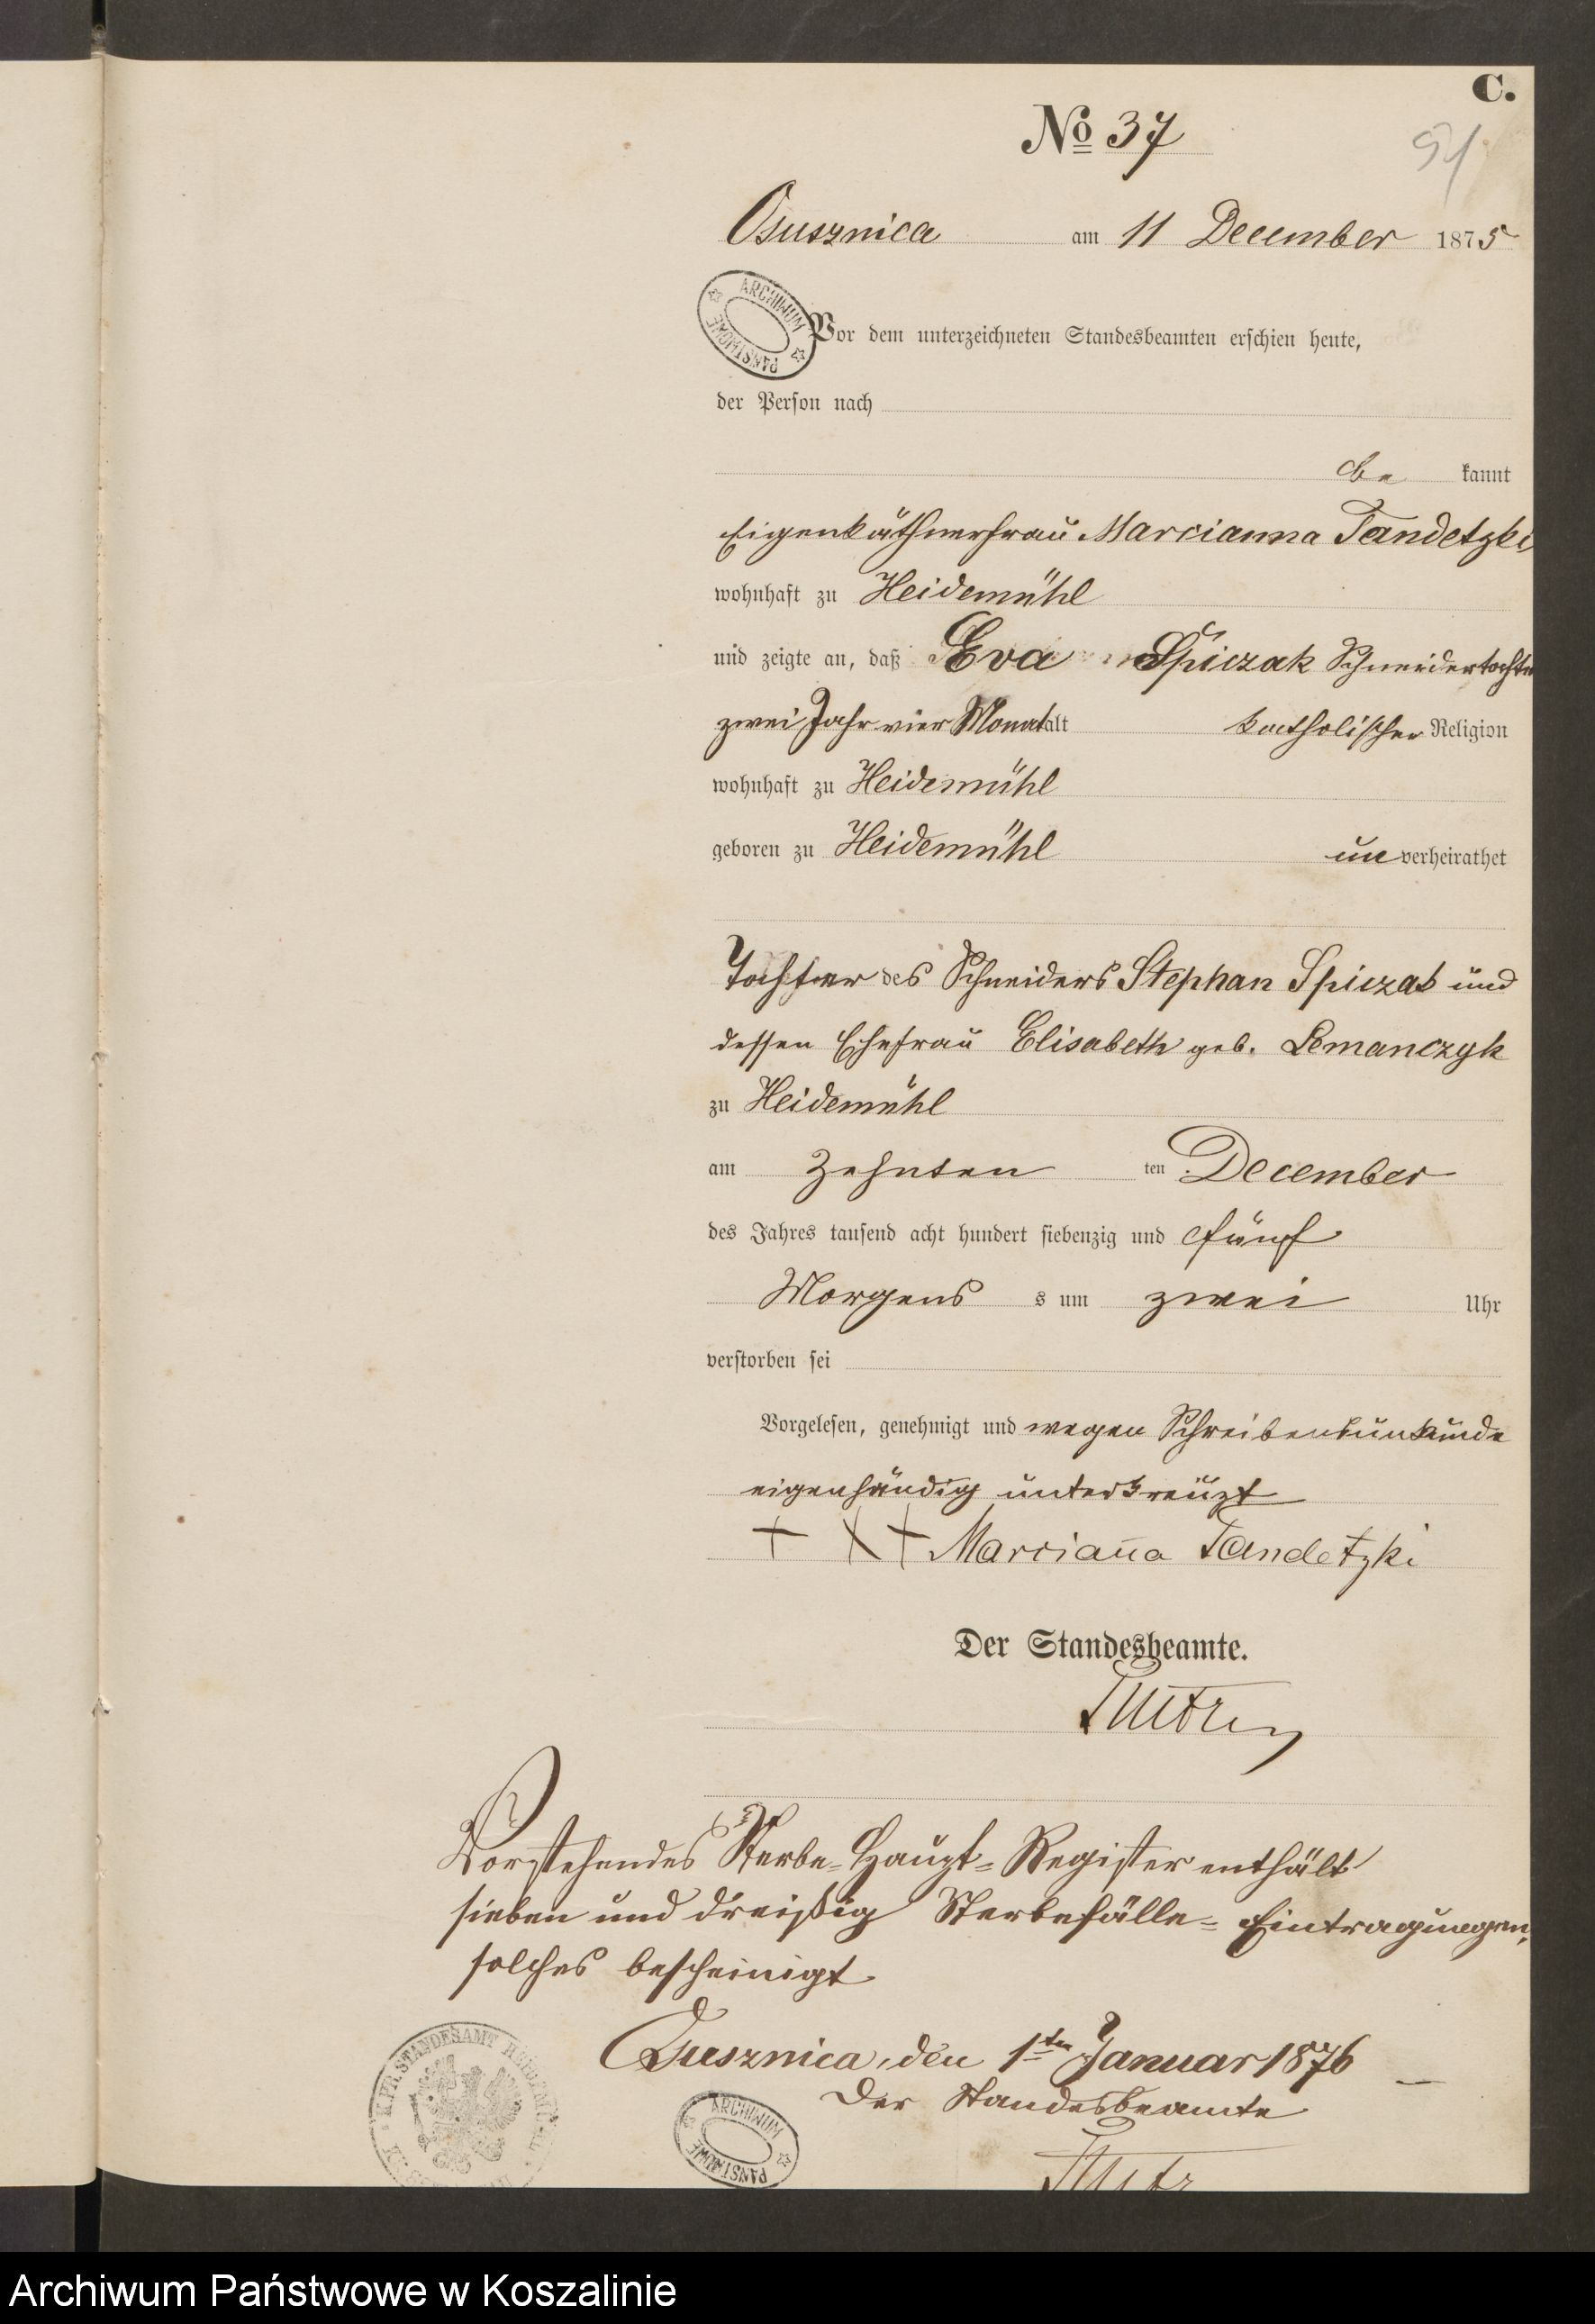 C.
No 37
51
Osusznica am 11 December 1875
ARCHIWUM PAŃSTWOWE
Vor dem unterzeichneten Standesbeamten erschien heute,
der Person nach
be kannt
Eigenkäthnerfrau Marcianna Tandetzki,
wohnhaft zu Heidemühl
und zeigte an, daß Eva Spiczak Schneidertochter
zwei Jahr vier Monat alt katholischer Religion
wohnhaft zu Heidemühl
geboren zu Heidemühl un verheirathet
Tochter des Schneiders Stephan Spiczak und
dessen Ehefrau Elisabeth geb. Lemanczyk
zu Heidemühl
am Zehnten ten December
des Jahres tausend acht hundert siebenzig und fünf
Morgens s um zwei Uhr
verstorben sei
Vorgelesen, genehmigt und wegen Schreibensunkunde
eigenhändig unterkreuzt
+ X + Marcian̄a Tandetzki
Der Standesbeamte.
Vorstehendes Sterbe-Haupt-Register enthält
sieben und dreißig Sterbefälle-Eintragungen,
solches bescheinigt
Osusznica, den 1ten Januar 1876
Der Standesbeamte
ARCHIWUM PAŃSTWOWE
Archiwum Państwowe w Koszalinie